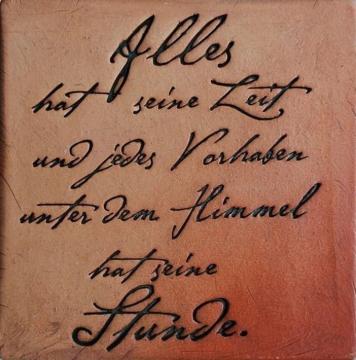 Alles
hat seine Zeit,
und jedes Vorhaben
unter dem Himmel
hat seine
Stunde.